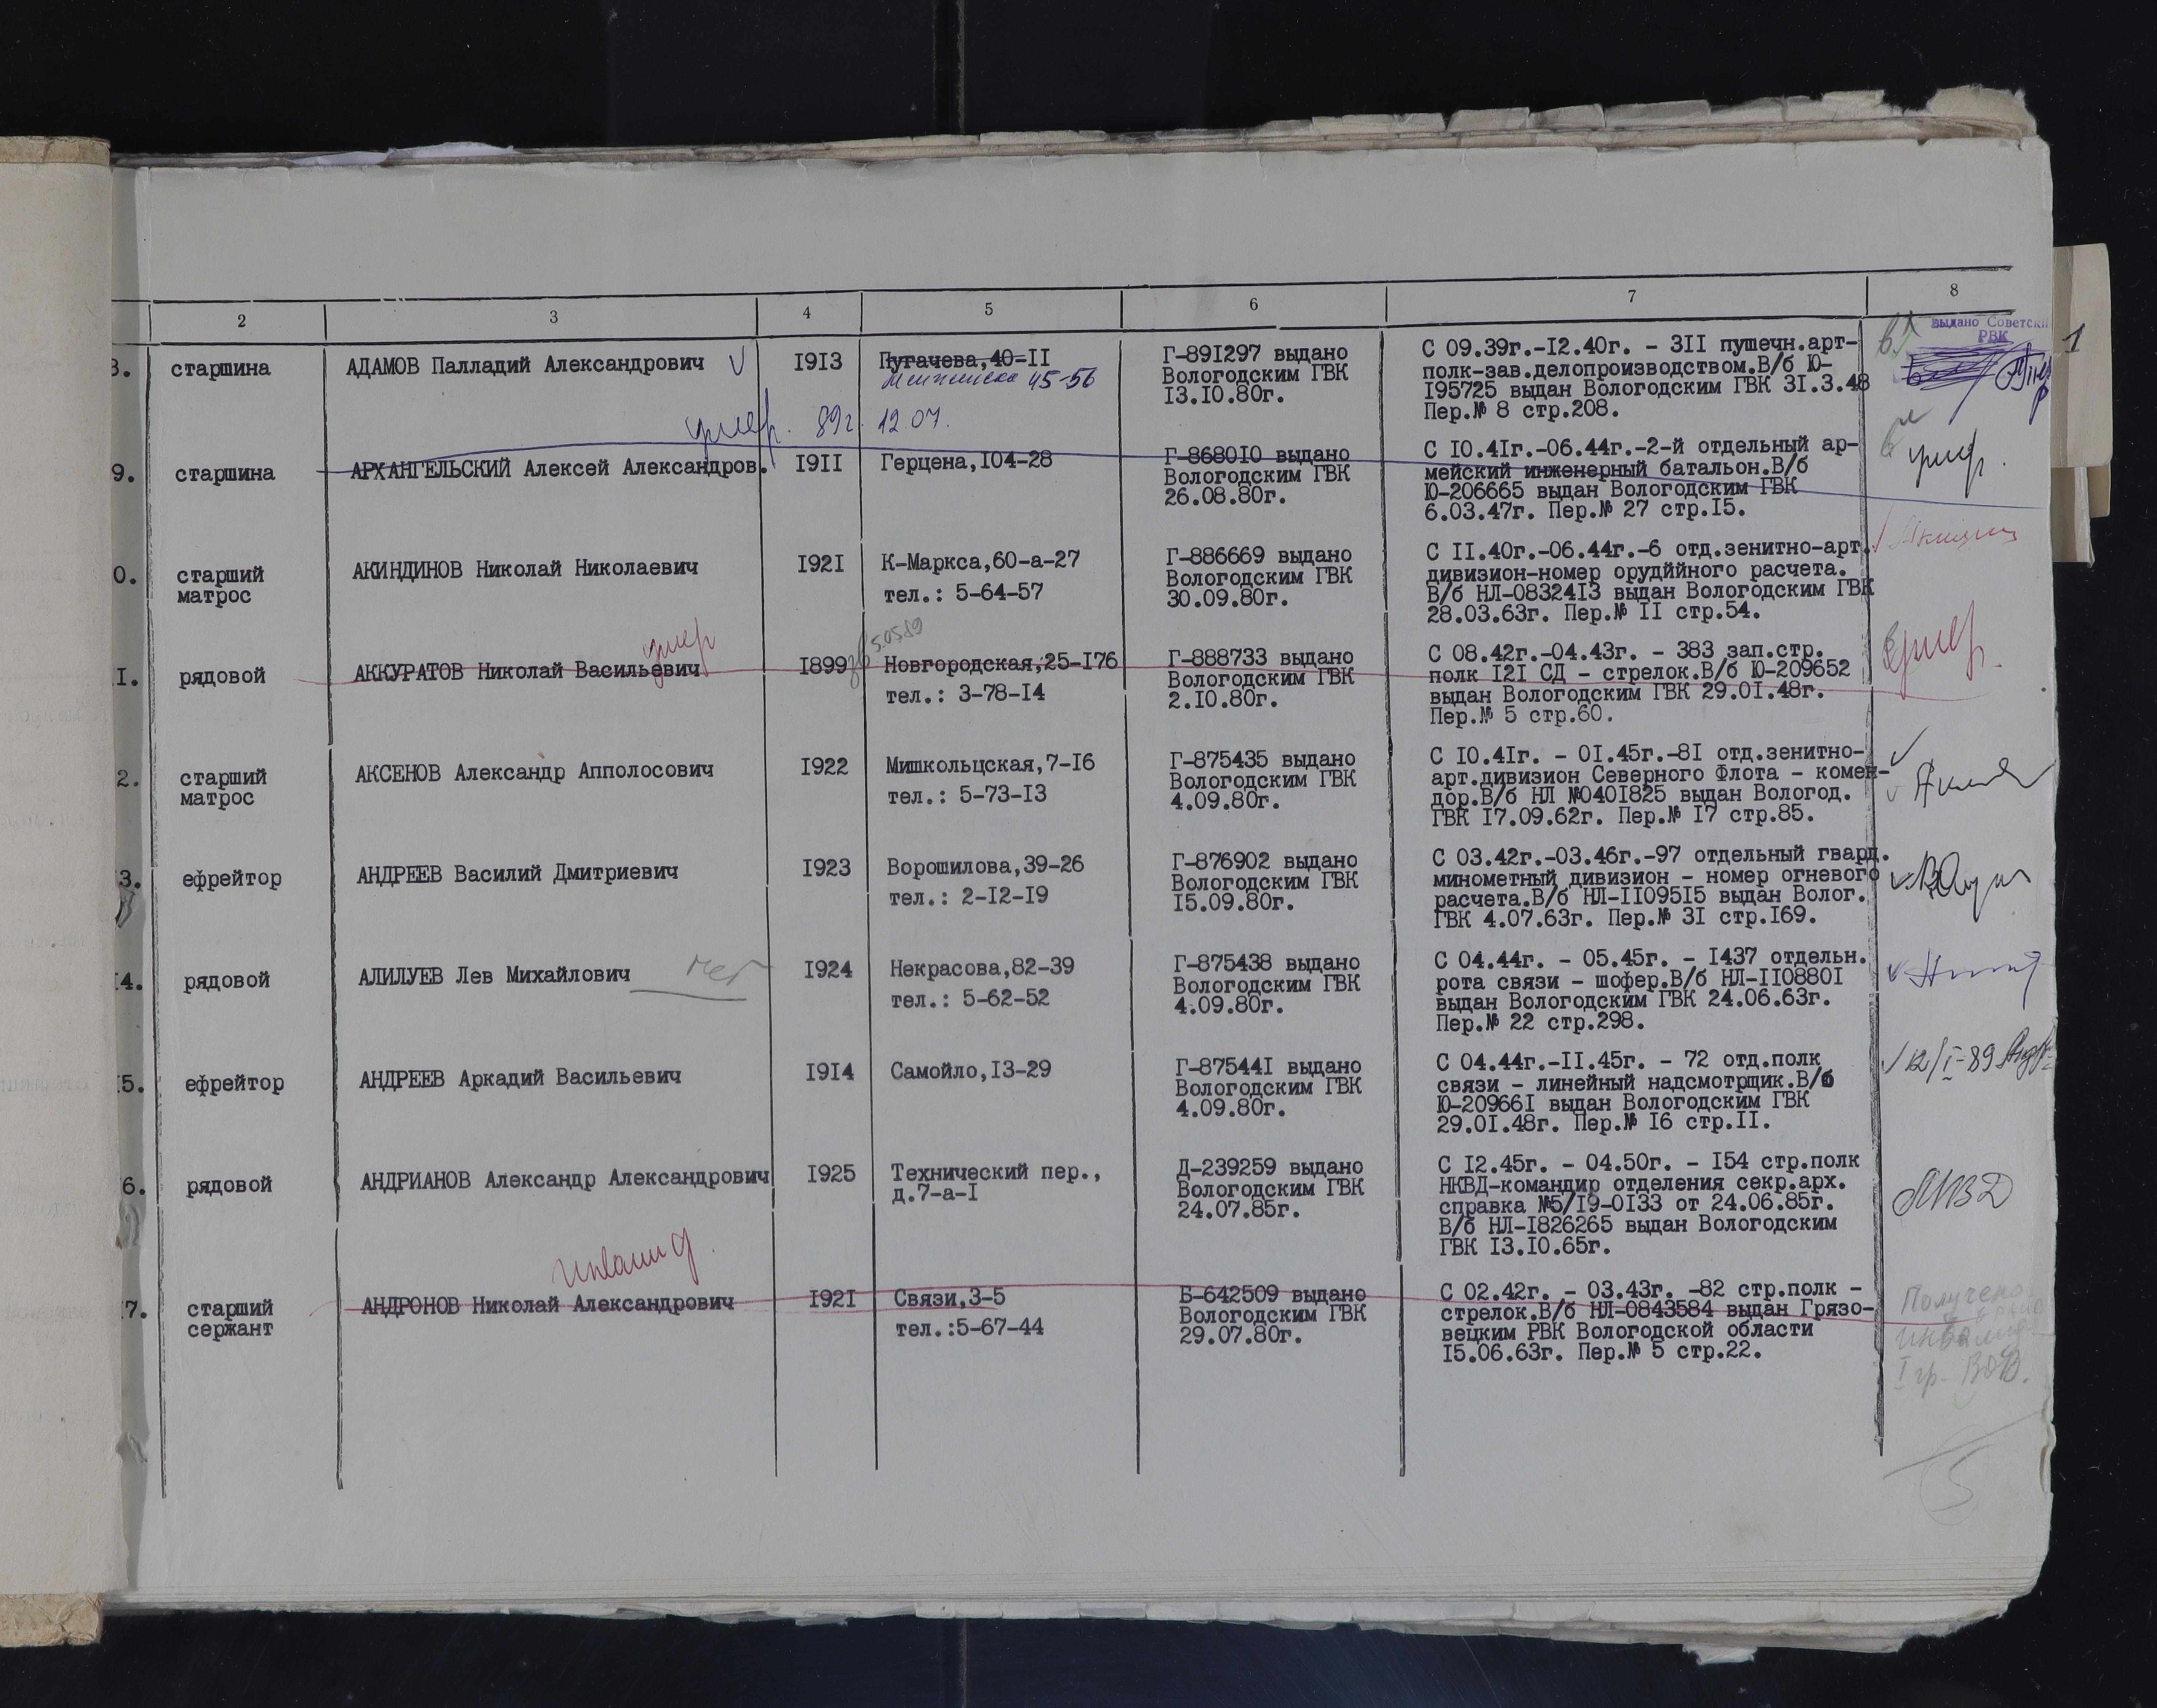 2 3 4 5 6 7 8
выдано Советски
РВК
1
8. старшина АДАМОВ Палладий Александрович 1913 Пугачева,40-11
45-56
Г-891297 выдано
Вологодским ГВК
13.10.80г.
С 09.39г.-12.40г. - 311 пушечн.арт-
полк-зав.делопроизводством.В/б Ю-
195725 выдан Вологодским ГВК 31.3.48
Пер.№ 8 стр.208.
умер. 89г. 12.07.
9. старшина АРХАНГЕЛЬСКИЙ Алексей Александров. 1911 Герцена,104-28
Г-868010 выдано
Вологодским ГВК
26.08.80г.
С 10.41г.-06.44г.-2-й отдельный ар-
мейский инженерный батальон.В/б
Ю-206665 выдан Вологодским ГВК
6.03.47г. Пер.№ 27 стр.15.
умер.
0. старший
матрос
АКИНДИНОВ Николай Николаевич 1921 К-Маркса,60-а-27
тел.: 5-64-57
Г-886669 выдано
Вологодским ГВК
30.09.80г.
С 11.40г.-06.44г.-6 отд.зенитно-арт.
дивизион-номер орудййного расчета.
В/б НЛ-0832413 выдан Вологодским ГВК
28.03.63г. Пер.№ 11 стр.54.
умер
1. рядовой АККУРАТОВ Николай Васильевич 1899 Новгородская,25-176
тел.: 3-78-14
Г-888733 выдано
Вологодским ГВК
2.10.80г.
С 08.42г.-04.43г. - 383 зап.стр.
полк 121 СД - стрелок.В/б Ю-209652
выдан Вологодским ГВК 29.01.48г.
Пер.№ 5 стр.60.
умер.
2. старший
матрос
АКСЕНОВ Александр Апполосович 1922 Мишкольцская,7-16
тел.: 5-73-13
Г-875435 выдано
Вологодским ГВК
4.09.80г.
С 10.41г. - 01.45г.-81 отд.зенитно-
арт.дивизион Северного Флота - комен-
дор.В/б НЛ №0401825 выдан Вологод.
ГВК 17.09.62г. Пер.№ 17 стр.85.
3. ефрейтор АНДРЕЕВ Василий Дмитриевич 1923 Ворошилова,39-26
тел.: 2-12-19
Г-876902 выдано
Вологодским ГВК
15.09.80г.
С 03.42г.-03.46г.-97 отдельный гвард.
минометный дивизион - номер огневого
расчета.В/б НЛ-1109515 выдан Волог.
ГВК 4.07.63г. Пер.№ 31 стр.169.
4. рядовой АЛИЛУЕВ Лев Михайлович нет 1924 Некрасова,82-39
тел.: 5-62-52
Г-875438 выдано
Вологодским ГВК
4.09.80г.
С 04.44г. - 05.45г. - 1437 отдельн.
рота связи - шофер.В/б НЛ-1108801
выдан Вологодским ГВК 24.06.63г.
Пер.№ 22 стр.298.
5. ефрейтор АНДРЕЕВ Аркадий Васильевич 1914 Самойло,13-29
Г-875441 выдано
Вологодским ГВК
4.09.80г.
С 04.44г.-11.45г. - 72 отд.полк
связи - линейный надсмотрщик.В/б
Ю-209661 выдан Вологодским ГВК
29.01.48г. Пер.№ 16 стр.11.
12/I-89
6. рядовой АНДРИАНОВ Александр Александрович 1925 Технический пер.,
д.7-а-1
Д-239259 выдано
Вологодским ГВК
24.07.85г.
С 12.45г. - 04.50г. - 154 стр.полк
НКВД-командир отделения секр.арх.
справка №5/19-0133 от 24.06.85г.
В/б НЛ-1826265 выдан Вологодским
ГВК 13.10.65г.
инвалид.
7. старший
сержант
АНДРОНОВ Николай Александрович 1921 Связи,3-5
тел.:5-67-44
Б-642509 выдано
Вологодским ГВК
29.07.80г.
С 02.42г. - 03.43г. -82 стр.полк -
стрелок.В/б НЛ-0843584 выдан Грязо-
вецким РВК Вологодской области
15.06.63г. Пер.№ 5 стр.22.
Получено
инвалид
I гр. ВОВ.
5